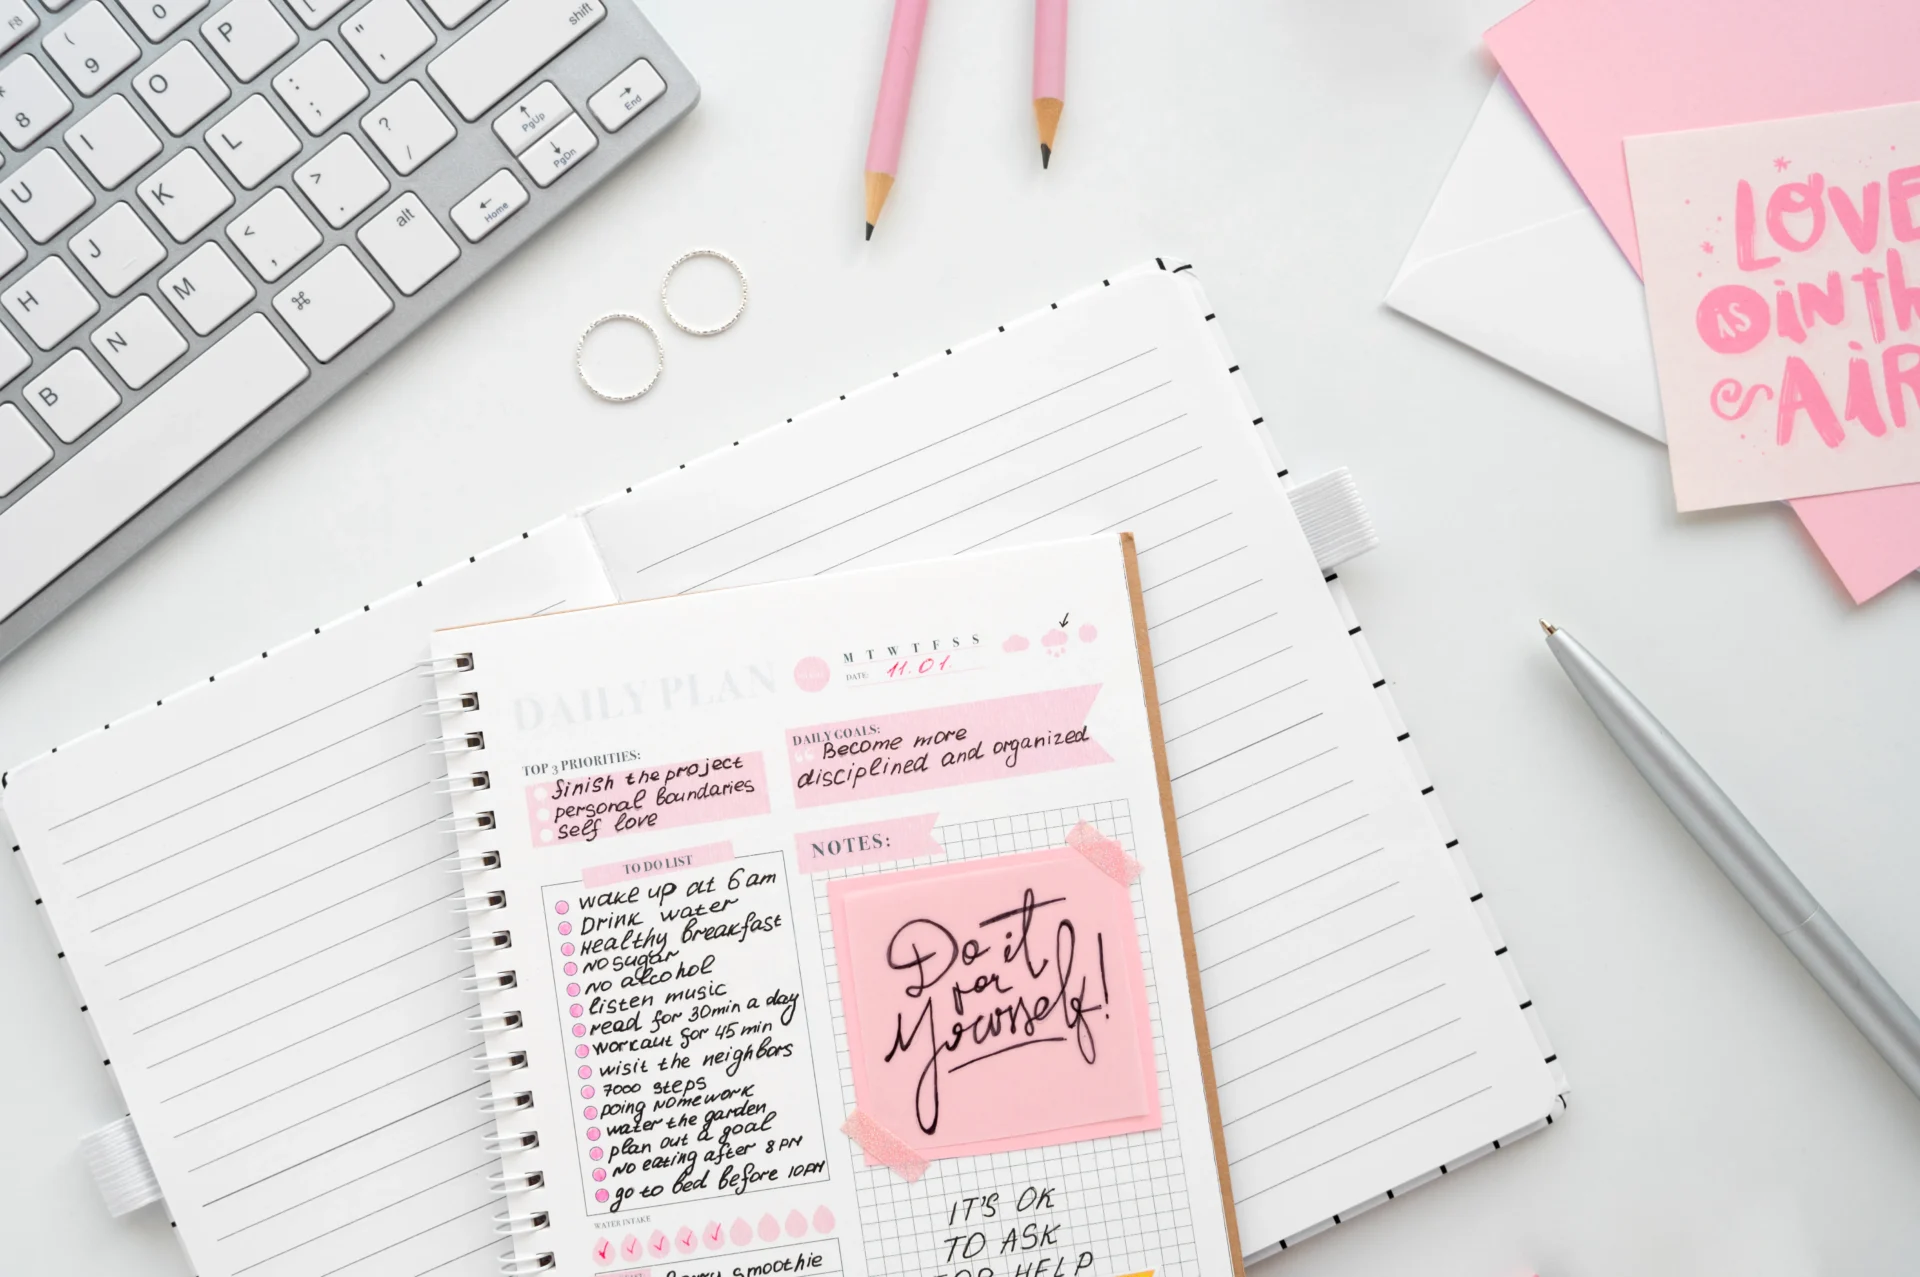 F8
( 9
0
P
" '
shift
* 8
I
O
L
: ;
? /
↑ PgUp
→ End
↓ PgDn
U
J
K
> .
alt
← Home
H
N
M
< ,
⌘
B
LOVE
IS IN TH
AIR
DAILY PLAN
M T W T F S S
DATE: 11.01.
TOP 3 PRIORITIES:
finish the project
personal boundaries
self love
DAILY GOALS:
Become more
disciplined and organized
TO DO LIST
wake up at 6 am
Drink water
Healthy breakfast
No sugar
no alcohol
listen music
read for 30min a day
workout for 45 min
wisit the neighbors
7000 steps
Doing homework
water the garden
plan out a goal
No eating after 8 PM
go to bed before 10PM
WATER INTAKE
smoothie
NOTES:
Do it
for
Yourself!
IT'S OK
TO ASK
FOR HELP